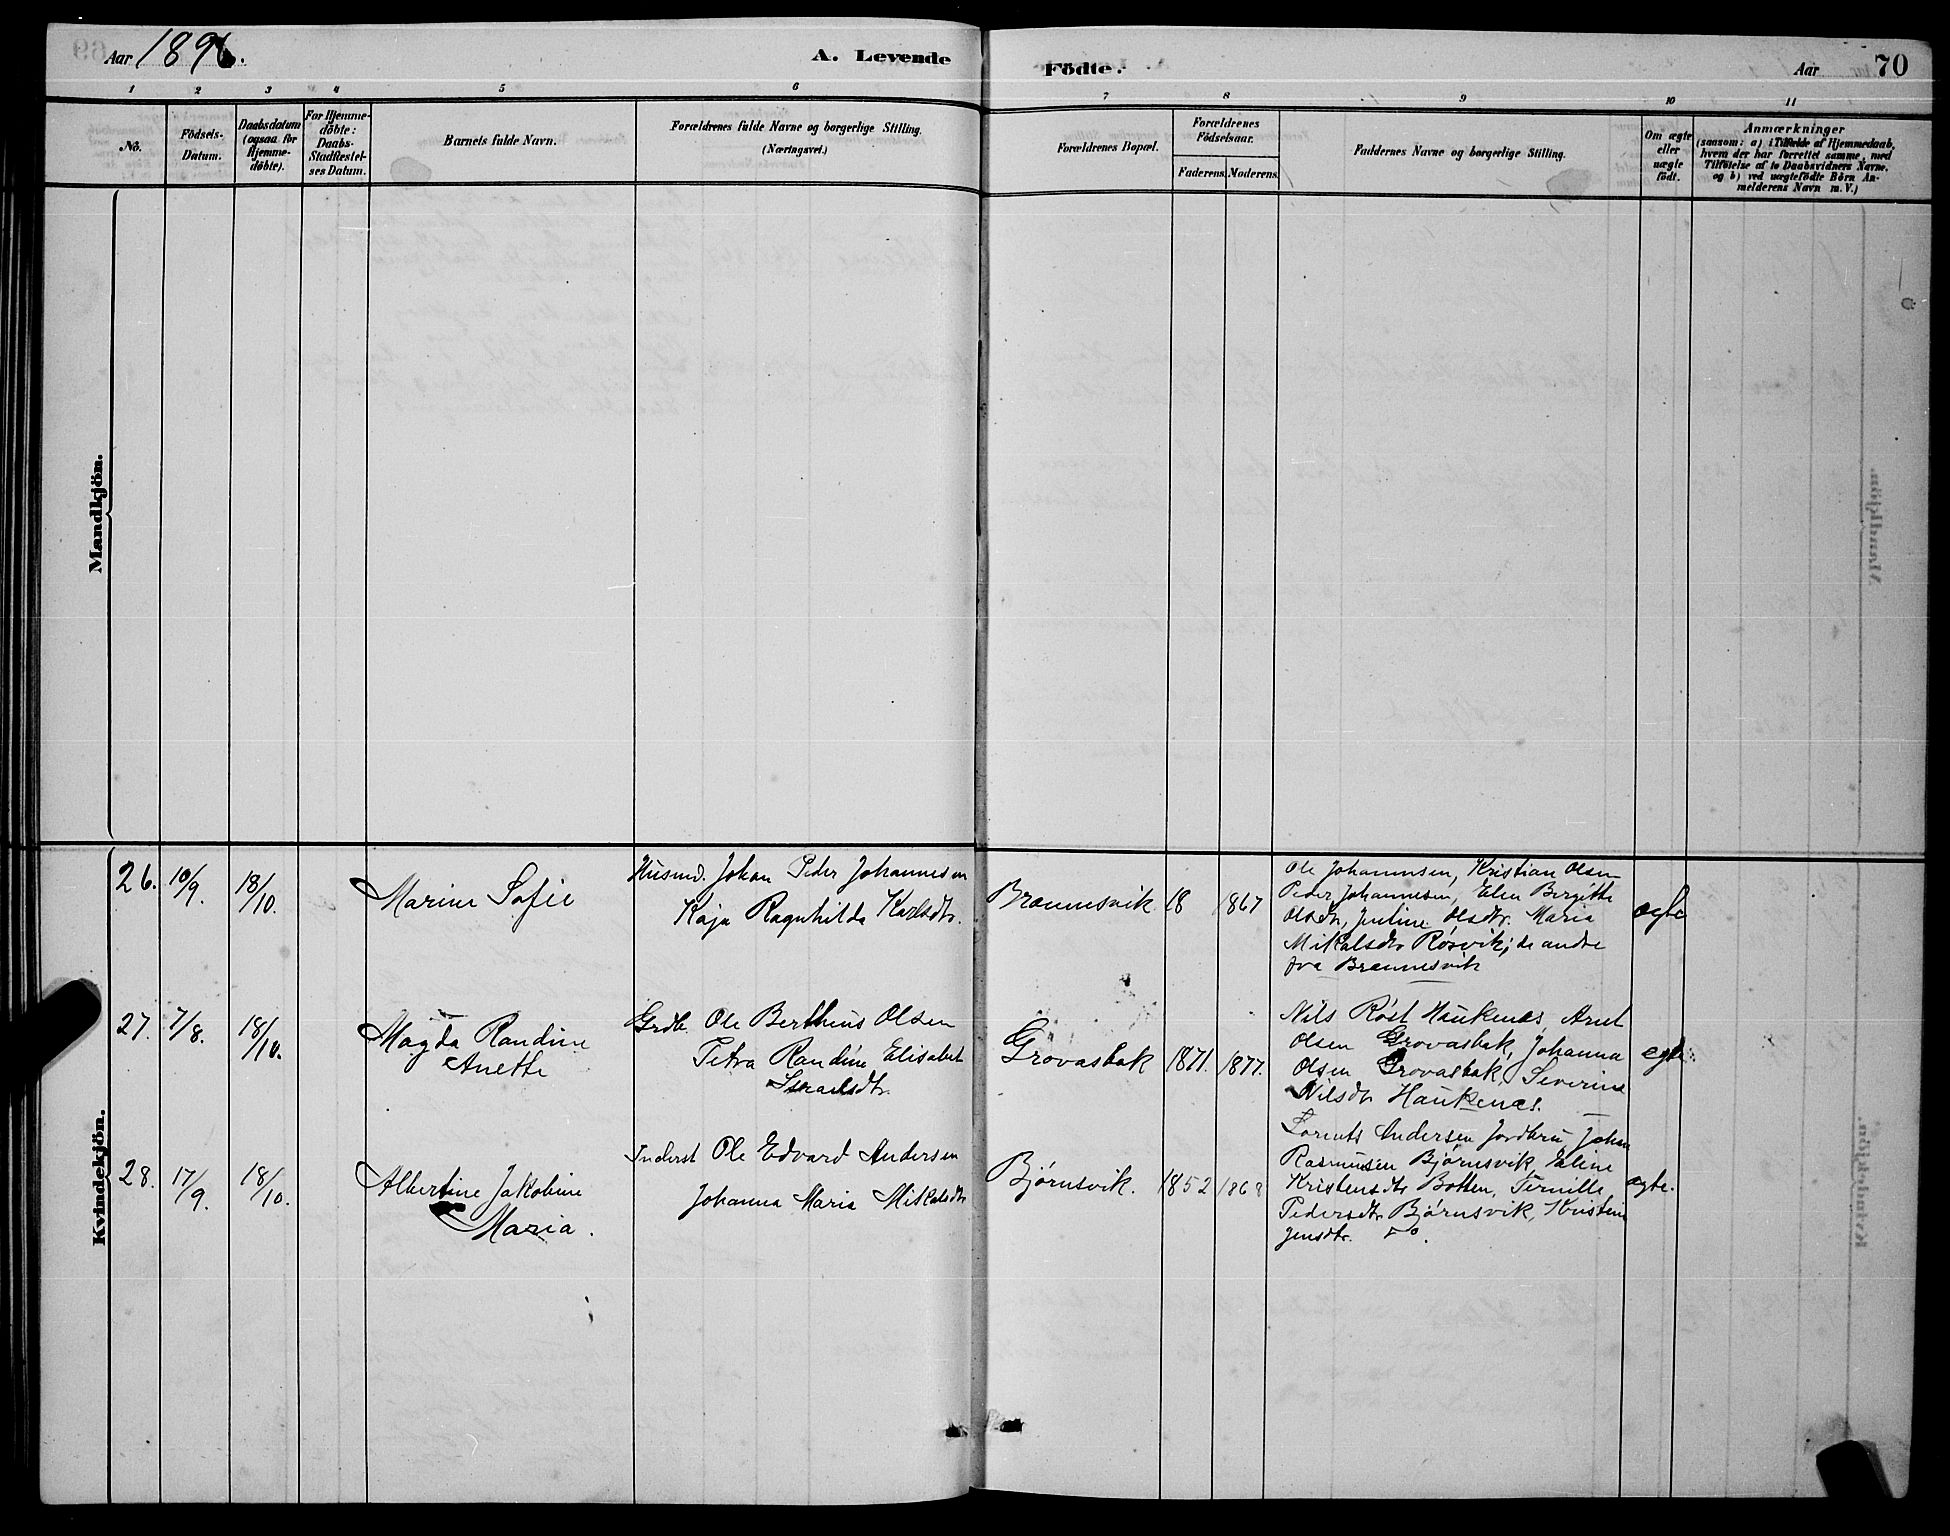 Aar 1896.
A. Levende
Födte.
Aar
70
1 2 3 4 5 6 7 8 9 10 11
No.
Födsels-
Datum.
Daabsdatum
(ogsaa for
Hjemme-
döbte).
For Hjemme-
döbte:
Daabs-
Stadfæstel-
ses Datum.
Barnets fulde Navn.
Forældrenes fulde Navne og borgerlige Stilling.
(Næringsvei.)
Forældrenes Bopæl.
Forældrenes
Födselsaar.
Faderens. Moderens.
Faddernes Navne og borgerlige Stilling.
Om ægte
eller
uægte
födt.
Anmærkninger
(saasom: a) i Tilfælde af Hjemmedaab,
hvem der har forrettet samme, med
Tilföielse af to Daabsvidners Navne,
og b) ved uægtefödte Börn An-
melderens Navn m. V.)
Mandkjön.
Kvindekjön.
26. 10/9. 18/10.
Marine Sofie
Husmd. Johan Peder Johannesen
Kaja Ragnhilda Karlsdtr.
Brænnesvik 18 1867
Ole Johannsen, Kristian Olsen
Peder Johannesen, Elen Bergitte
Olsdtr, Juline Olsdtr. Maria
Mikalsdtr Røsvik; de andre
fra Brænnesvik
ægte
27. 7/8. 18/10.
Magda Randine
Anette
Grdb. Ole Bertheus Olsen
Petra Randine Elisabet
Israelsdtr.
Grovasbak 1871. 1877.
Nils Røst Haukenæs, Arnt
Olsen Grovasbak, Johanna
Olsen Grovasbak, Severine
Nilsdtr Haukenæs.
ægte
28. 17/9. 18/10.
Albertine Jakobine
Maria.
Inderst Ole Edvard Andersen
Johanna Maria Mikalsdtr
Bjørnsvik. 1852 1868
Lorents Andersen Jordbru, Johan
Rasmussen Bjørnsvik, Eline
Kristensdtr Botten, Pernille
Pedersdtr Bjørnsvik, Kristine
Jensdtr. do.
ægte.